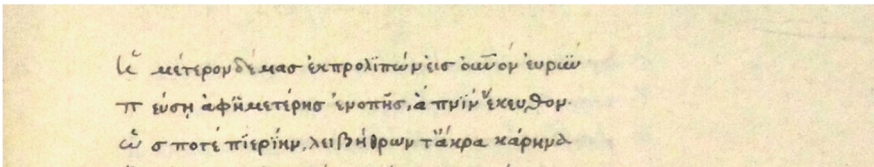 Ἡ μέτερον δέμας ἐκπρολϊπὼν εἰς οὐνὸν εὐρϋν
π εύσῃ ἀφἡμετέρης ἐνοπῆς, ἃ πρϊν ἔκευθον·
ὥ ς ποτὲ πϊερίην, λειβήθρων τ' ἄκρα κάρηνα